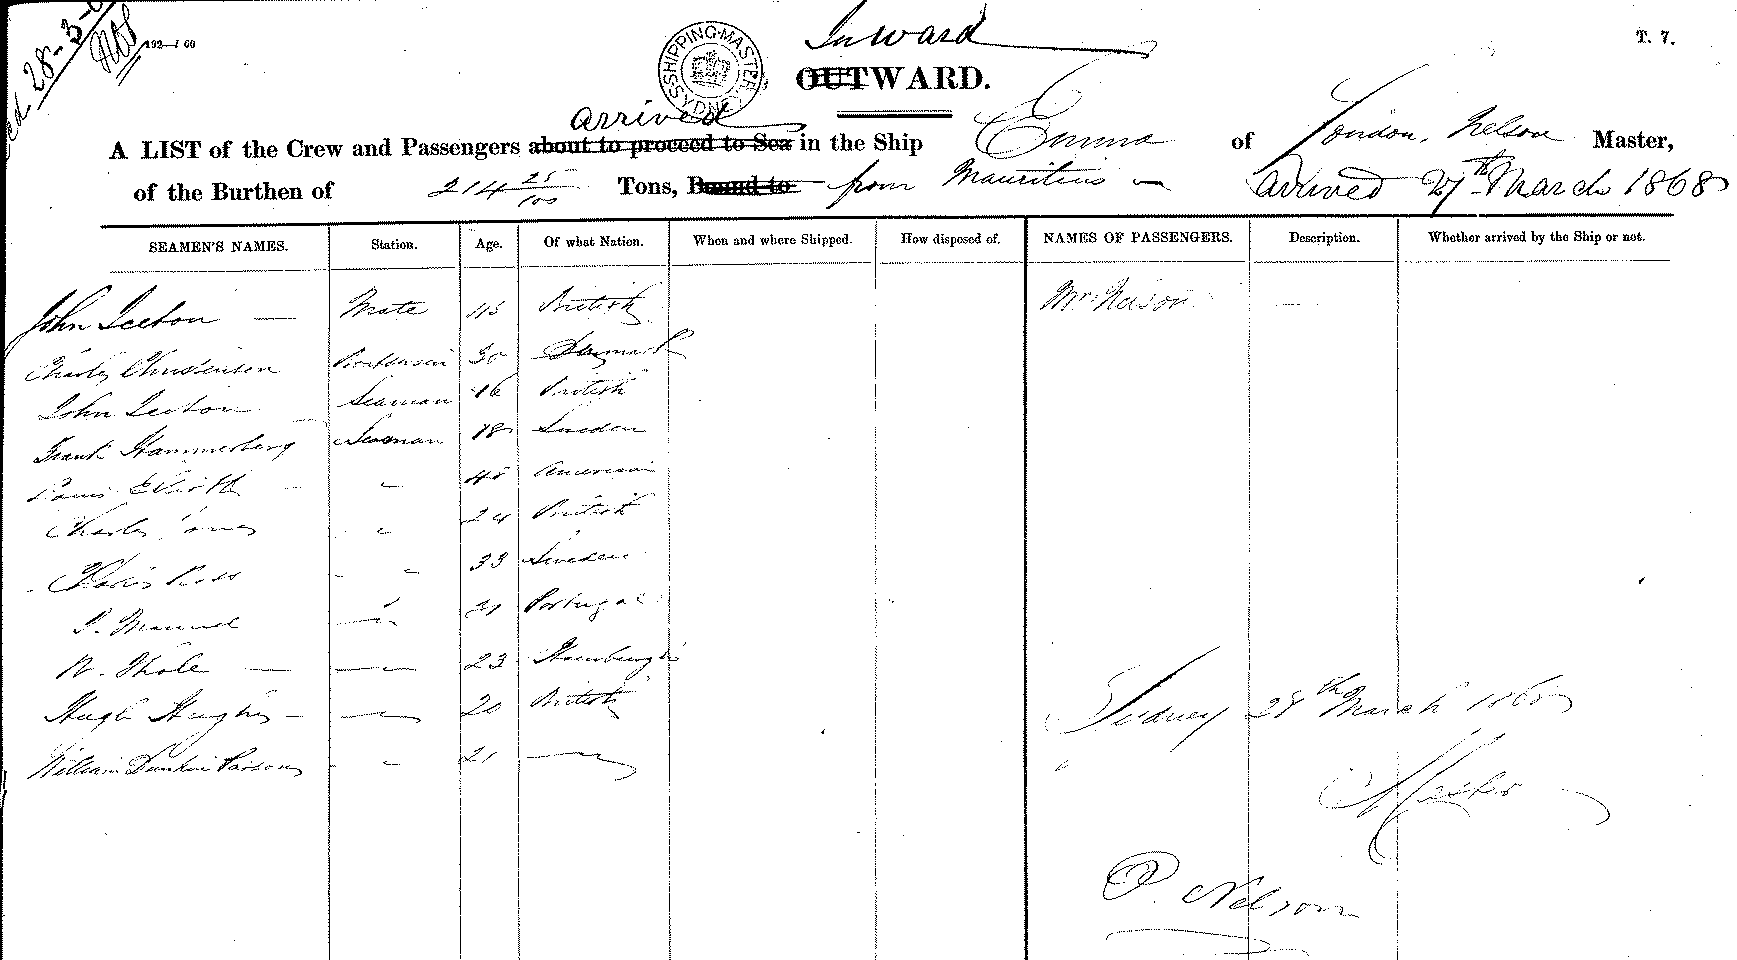 28-3-
192—/ 60
SHIPPING MASTER SYDNEY
Inward
T. 7.
OUTWARD.
arrived
A LIST of the Crew and Passengers about to proceed to Sea in the Ship Emma of London, Nelson Master,
of the Burthen of 214 25/100 Tons, Bound to from Mauritius — arrived 27th March 1868
SEAMEN'S NAMES. Station. Age. Of what Nation. When and where Shipped. How disposed of. NAMES OF PASSENGERS. Description. Whether arrived by the Ship or not.
John Leeton — Mate 45 British Mrs Nelson —
Charles Christensen 30 Denmark
John Leeton Seaman 16 British
Frank Hammerberg Seaman 18 Sweden
Louis — " American
Charles Jones " 24 British
Ross " 33 Sweden
Manuel " 21 Portugal
W. Thole — — 23 Hamburgh
Hugh Hughes — — 20 British
Sydney 28th March 1868
William Parsons " 21 —
Master
P. Nelson